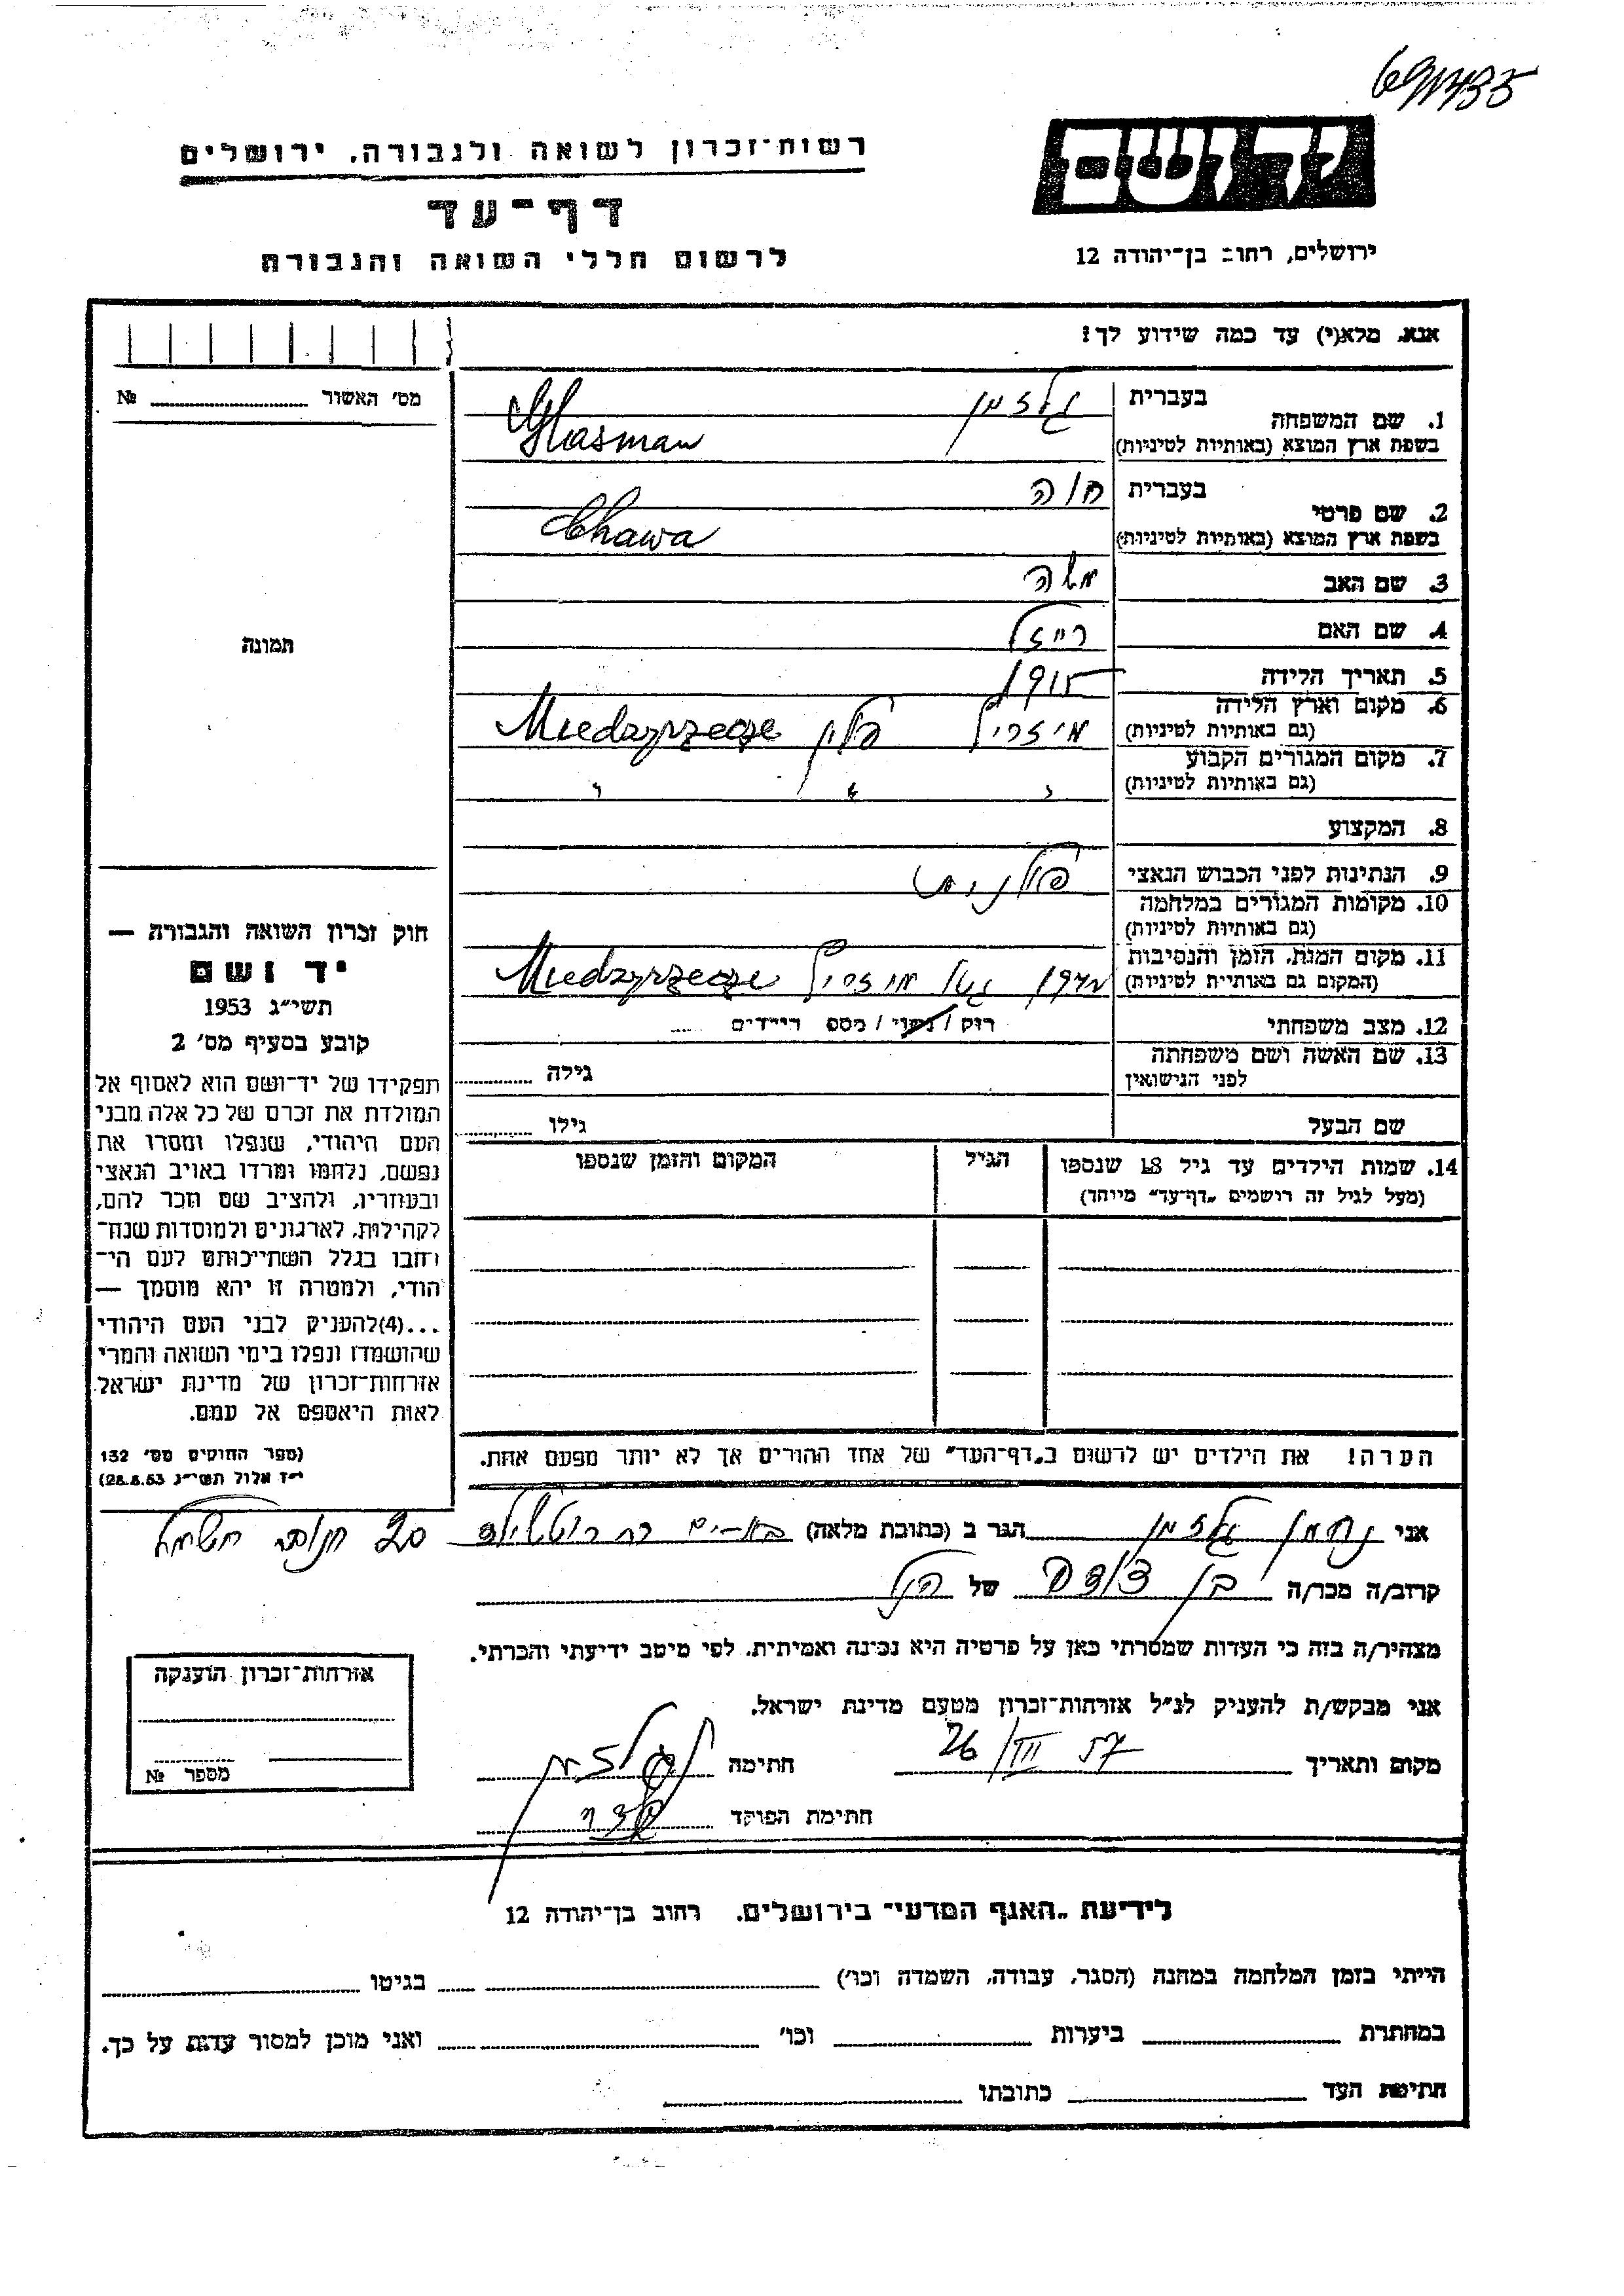 רשות־זכרון לשואה ולגבורה. ירושלים
דף־עד
לרשום חללי השואה והגבורה
יד ושם
ירושלים, רחוב בן־יהודה 12
אנא. מלא(י) עד כמה שידוע לך!
מס׳ האשור № 
1. שם המשפחה בעברית גלזמן
בשפת ארץ המוצא (באותיות לטיניות) Glasman
2. שם פרטי בעברית חוה
בשפת ארץ המוצא (באותיות לטיניות) Chawa
3. שם האב משה
4. שם האם רייזל
תמונה
5. תאריך הלידה 1915
6. מקום וארץ הלידה
(גם באותיות לטיניות) מיזריץ פולין Miedzyrzecze
7. מקום המגורים הקבוע
(גם באותיות לטיניות) " " "
8. המקצוע
9. הנתינות לפני הכבוש הנאצי פולנית
10. מקומות המגורים במלחמה
(גם באותיות לטיניות)
11. מקום המות, הזמן והנסיבות
(המקום גם באותיות לטיניות) גטו מיזריץ Miedzyrzecze
12. מצב משפחתי רוק / נשוי / מספר הילדים
13. שם האשה ושם משפחתה
לפני הנישואין גילה
שם הבעל גילו
14. שמות הילדים עד גיל 18 שנספו הגיל המקום והזמן שנספו
(מעל לגיל זה רושמים „דף־עד״ מיוחד)
הערה! את הילדים יש לרשום ב„דף־העד״ של אחד ההורים אך לא יותר מפעם אחת.
חוק זכרון השואה והגבורה —
יד ושם
תשי״ג 1953
קובע בסעיף מס׳ 2
תפקידו של יד־ושם הוא לאסוף אל
המולדת את זכרם של כל אלה מבני
העם היהודי, שנפלו ומסרו את
נפשם, נלחמו ומרדו באויב הנאצי
ובעוזריו, ולהציב שם וזכר להם,
לקהילות, לארגונים ולמוסדות שנח־
רחבו בגלל השתייכותם לעם הי־
הודי, ולמטרה זו יהא מוסמך —
...(4)להעניק לבני העם היהודי
שהושמדו ונפלו בימי השואה והמרי
אזרחות־זכרון של מדינת ישראל
לאות היאספם אל עמם.
(ספר החוקים מס׳ 132
י״ז אלול תשי״ג 28.8.53)
אני נחמן גלזמן הגר ב (כתובת מלאה) בת־ים רח רוטשילד 20
קרוב/ה מכר/ה בן דודם של הנ״ל
מצהיר/ה בזה כי העדות שמסרתי כאן על פרטיה היא נכונה ואמיתית, לפי מיטב ידיעתי והכרתי.
אני מבקש/ת להעניק לנ״ל אזרחות־זכרון מטעם מדינת ישראל.
מקום ותאריך 26/III 57 חתימה נ גלזמן
חתימת הפוקד
אזרחות־זכרון הוענקה
מספר №
לידיעת „האגף המדעי״ בירושלים. רחוב בן־יהודה 12
הייתי בזמן המלחמה במחנה (הסגר, עבודה, השמדה וכו׳) בגיטו
במחתרת ביערות וכו׳ ואני מוכן למסור עדות על כך.
חתימת העד כתובתו